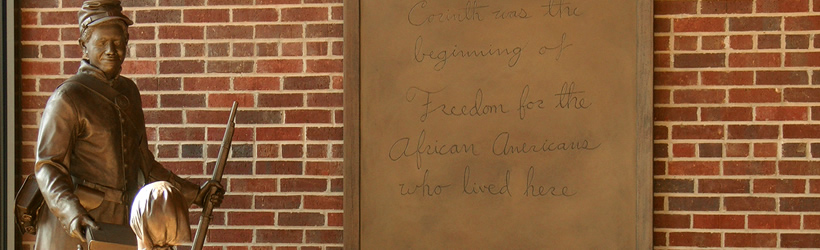 Corinth was the
beginning of
Freedom for the
African Americans
who lived here